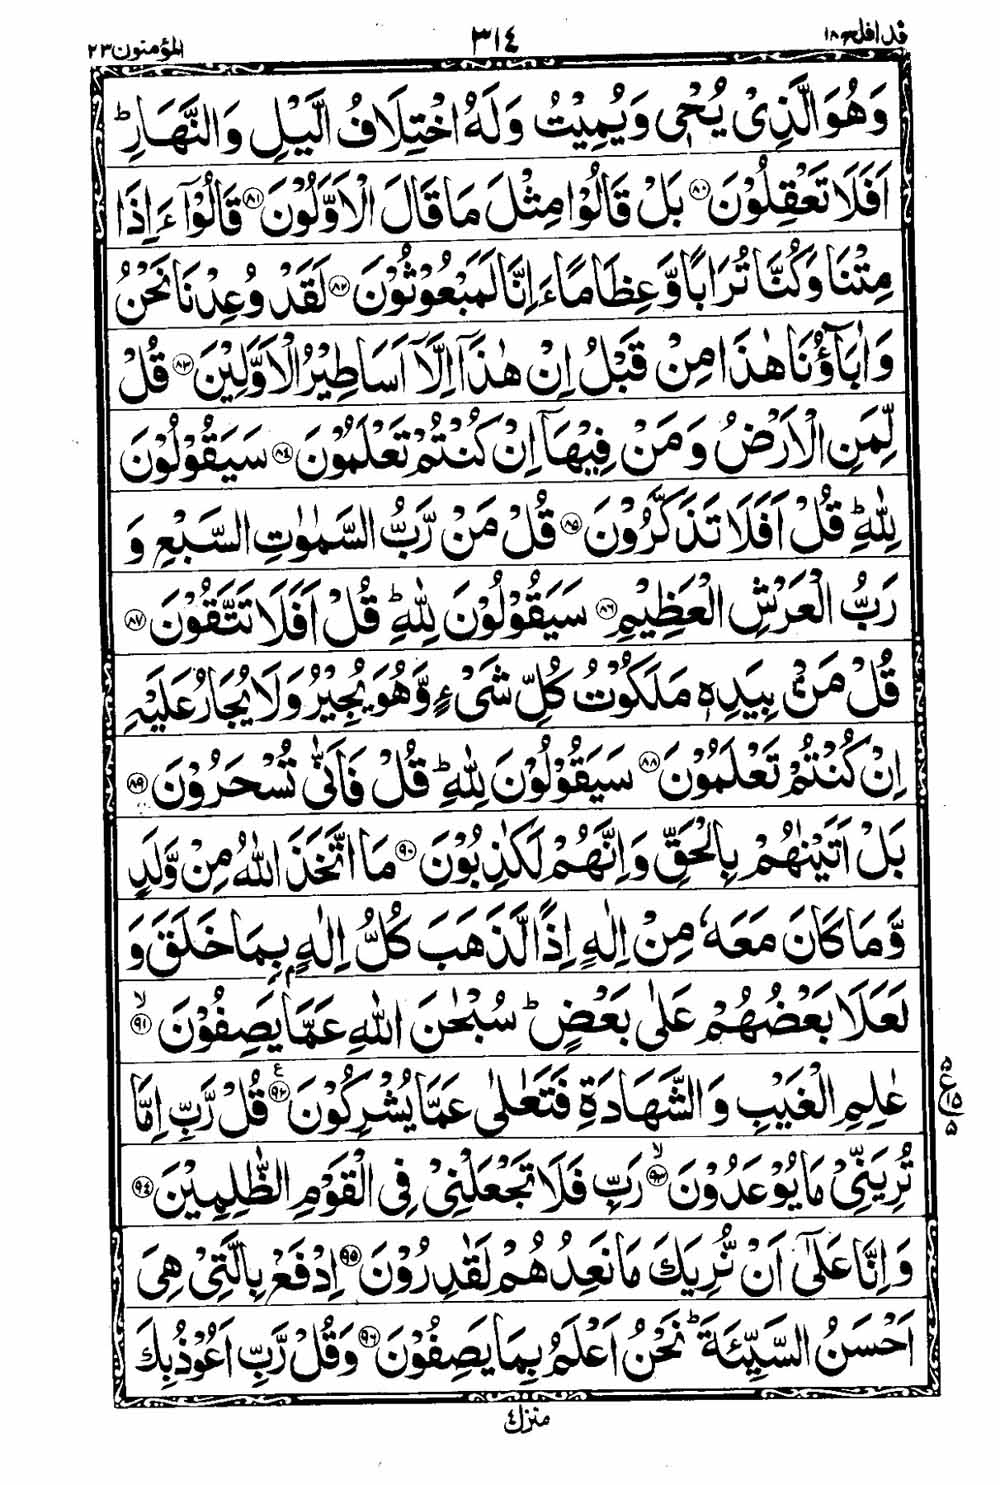 قد افلح ١٨ ٣١٤ المؤمنون ٢٣
وَهُوَ الَّذِیْ یُحْیٖ وَیُمِیْتُ وَلَهُ اخْتِلَافُ الَّیْلِ وَالنَّهَارِ ؕ
اَفَلَا تَعْقِلُوْنَ ﴿۸۰﴾ بَلْ قَالُوْا مِثْلَ مَا قَالَ الْاَوَّلُوْنَ ﴿۸۱﴾ قَالُوْۤا ءَاِذَا
مِتْنَا وَكُنَّا تُرَابًا وَّعِظَامًا ءَاِنَّا لَمَبْعُوْثُوْنَ ﴿۸۲﴾ لَقَدْ وُعِدْنَا نَحْنُ
وَاٰبَآؤُنَا هٰذَا مِنْ قَبْلُ اِنْ هٰذَاۤ اِلَّاۤ اَسَاطِیْرُ الْاَوَّلِیْنَ ﴿۸۳﴾ قُلْ
لِّمَنِ الْاَرْضُ وَمَنْ فِیْهَاۤ اِنْ كُنْتُمْ تَعْلَمُوْنَ ﴿۸۴﴾ سَیَقُوْلُوْنَ
لِلّٰهِ ؕ قُلْ اَفَلَا تَذَكَّرُوْنَ ﴿۸۵﴾ قُلْ مَنْ رَّبُّ السَّمٰوٰتِ السَّبْعِ وَ
رَبُّ الْعَرْشِ الْعَظِیْمِ ﴿۸۶﴾ سَیَقُوْلُوْنَ لِلّٰهِ ؕ قُلْ اَفَلَا تَتَّقُوْنَ ﴿۸۷﴾
قُلْ مَنْۢ بِیَدِهٖ مَلَكُوْتُ كُلِّ شَیْءٍ وَّهُوَ یُجِیْرُ وَلَا یُجَارُ عَلَیْهِ
اِنْ كُنْتُمْ تَعْلَمُوْنَ ﴿۸۸﴾ سَیَقُوْلُوْنَ لِلّٰهِ ؕ قُلْ فَاَنّٰی تُسْحَرُوْنَ ﴿۸۹﴾
بَلْ اَتَیْنٰهُمْ بِالْحَقِّ وَاِنَّهُمْ لَكٰذِبُوْنَ ﴿۹۰﴾ مَا اتَّخَذَ اللّٰهُ مِنْ وَّلَدٍ
وَّمَا كَانَ مَعَهٗ مِنْ اِلٰهٍ اِذًا لَّذَهَبَ كُلُّ اِلٰهٍۭ بِمَا خَلَقَ وَ
لَعَلَا بَعْضُهُمْ عَلٰی بَعْضٍ ؕ سُبْحٰنَ اللّٰهِ عَمَّا یَصِفُوْنَ ﴿۹۱﴾ ۙ
عٰلِمِ الْغَیْبِ وَالشَّهَادَةِ فَتَعٰلٰی عَمَّا یُشْرِكُوْنَ ﴿۹۲﴾ ع قُلْ رَّبِّ اِمَّا
۵ ع ۱۵ ۵
تُرِیَنِّیْ مَا یُوْعَدُوْنَ ﴿۹۳﴾ ۙ رَبِّ فَلَا تَجْعَلْنِیْ فِی الْقَوْمِ الظّٰلِمِیْنَ ﴿۹۴﴾
وَاِنَّا عَلٰۤی اَنْ نُّرِیَكَ مَا نَعِدُهُمْ لَقٰدِرُوْنَ ﴿۹۵﴾ اِدْفَعْ بِالَّتِیْ هِیَ
اَحْسَنُ السَّیِّئَةَ ؕ نَحْنُ اَعْلَمُ بِمَا یَصِفُوْنَ ﴿۹۶﴾ وَقُلْ رَّبِّ اَعُوْذُ بِكَ
منزل ٤